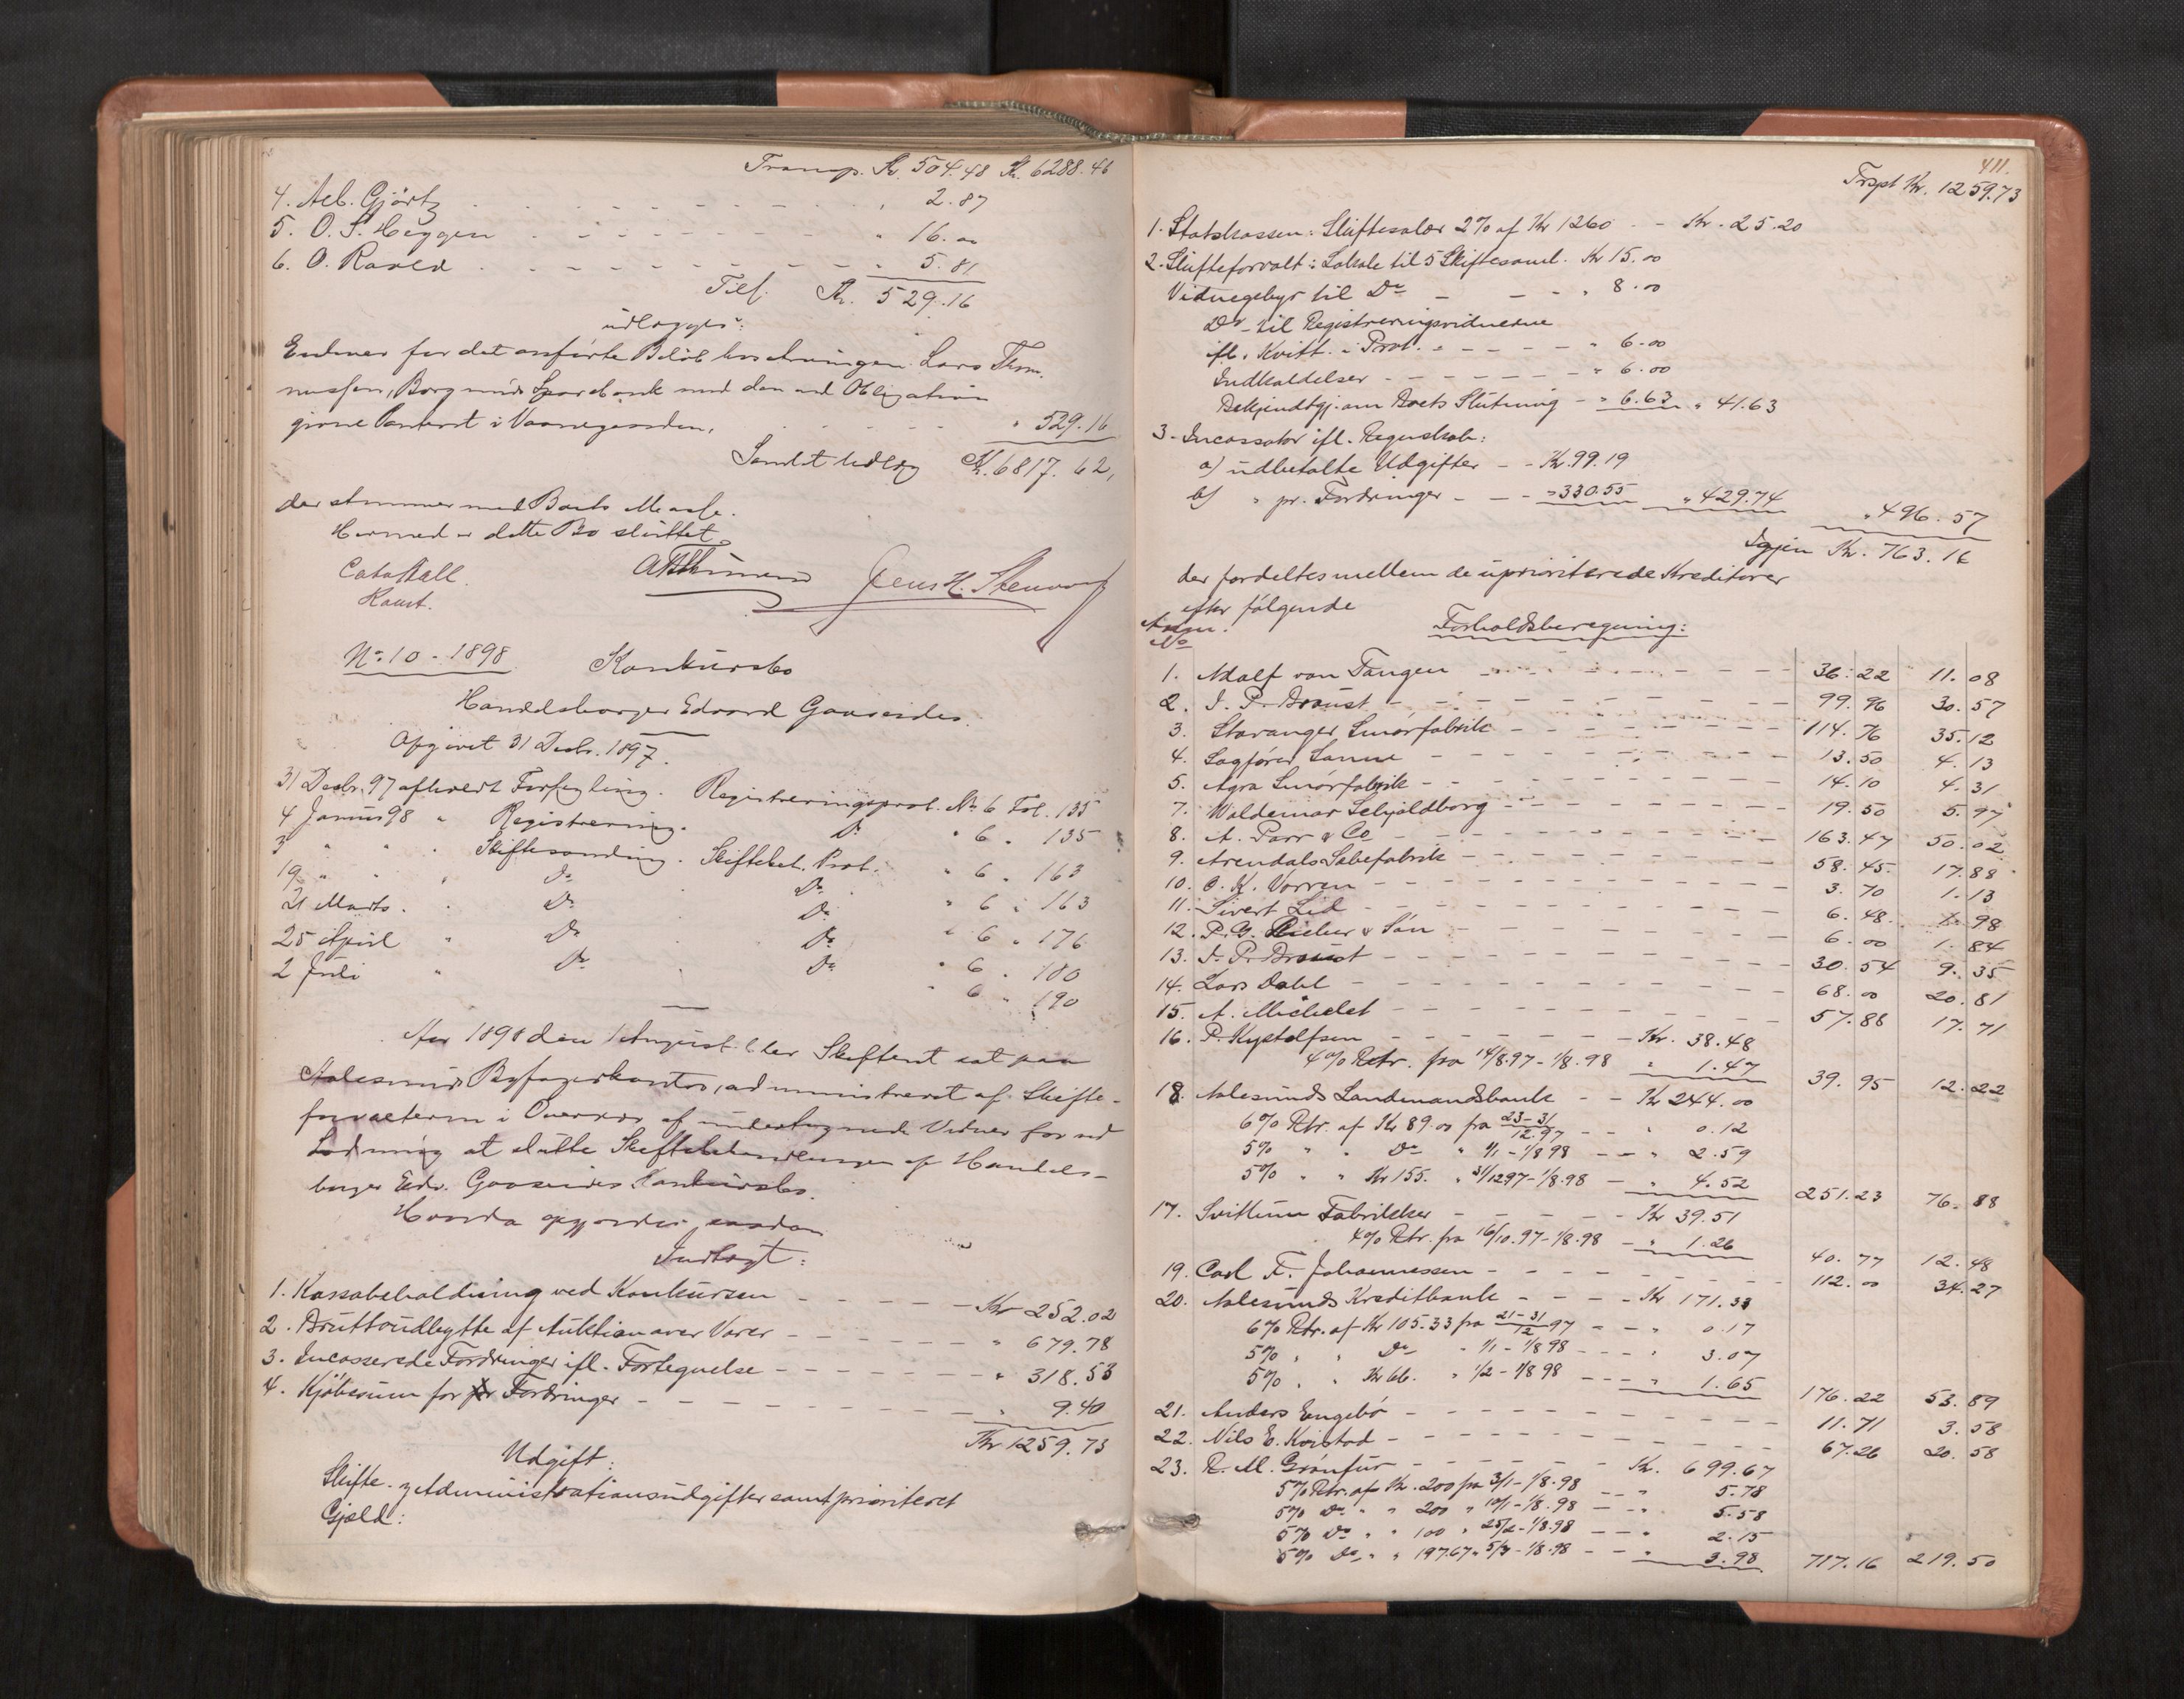 Transp. Kr. 504.48 Kr. 6288.46
4. Aeb. Gjörtz - - - - - - - - „ 2.87
5. O. S. Heggen - - - - - - - „ 16.00
6. O. Ravld - - - - - - - - „ 5.81
Tils. Kr. 529.16
udlægges:
Enkner for det anförte Belöb Lars Thor-
Borgunds Sparebank mod den ved Obligation
givne Panteret i Vaanegaarden. „ 529.16
Samlet Udlæg Kr. 6817.62,
der stemmer med Boets Masse.
Hermed er dette Bo sluttet.
Konst. Jens H.
No. 10 - 1898 Konkursbo
Handelsborger Edvard Gaaseides.
Opgivet 31 Decbr. 1897.
31 Decbr. 97 afholdt Forsegling. Registreringsprot. No. 6 Fol. 135
4 Januar 98 „ Registrering. Do „ 6 „ 135
3 „ „ „ Skiftesamling. Skiftebeh. Prot. „ 6 „ 163
19 „ „ „ Do Do „ 6 „ 163
21 Marts „ Do Do „ 6 „ 176
25 April „ Do Do „ 6 „ 180
2 Juli „ Do Do „ 6 „ 190
Aar 1898 den 1 August blev Skifteret sat paa
Aalesunds Byfogedkontor, administreret af Skifte-
forvalteren i Overvær af undertegnede Vidner for ved
Lodning at slutte Skiftebehandlingen af Handels-
borger Edv. Gaaseides Konkursbo.
Hvorda opgjordes saadan
Indtægt:
1. Kassabeholdning ved Konkursen - - - - - Kr 252.02
2. Bruttoudbytte af Auktion over Varer - - - - - „ 679.78
3. Incasserede Fordringer ifl. Fortegnelse - - - - - „ 318.53
4. Kjöbesum for Fordringer - - - - - - - „ 9.40
Kr 1259.73
Udgift:
Skifte- og Administrationsudgifter samt prioriteret
Gjæld:
411.
Trspt Kr. 1259.73
1. Statskassen: Skiftesalær 2% af Kr 1260 - - Kr. 25.20
2. Skifteforvalt: Lokale til 5 Skiftesaml. Kr 15.00
Vidnegebyr til Do - - - „ 8.00
Do - til Registreringsvidnerne
ifl. Kvitt. i Prot. - - - - - „ 6.00
Indkaldelser - - - - - - - „ 6.00
Bekjendtgj. om Boets Slutning - „ 6.63 „ 41.63
3. Incassator ifl. Regnskab:
a) udbetalte Udgifter - - Kr. 99.19
b) „ pr. Fordringer - - - „ 330.55 „ 429.74 „ 496.57
Igjen Kr. 763.16
der fordeltes mellem de uprioriterede Kreditorer
efter følgende
Anm. No Forholdsberegning:
1. Adalf von Tangen - - - 36.22 11.08
2. J. P. Broust - - - 99.96 30.57
3. Stavanger Smørfabrik - - - 114.76 35.12
4. Sagfører Sanne - - - 13.50 4.13
5. Agra Smørfabrik - - - 14.10 4.31
7. Waldemar Schjøldborg - - - 19.50 5.97
8. A. Parr & Co - - - 163.47 50.02
9. Arendals Sæbefabrik - - - 58.45 17.88
10. O. K. Vorren - - - 3.70 1.13
11. Sivert Lid - - - 6.48 1.98
12. P. G. Rieber & Søn - - - 6.00 1.84
13. J. P. Broust - - - 30.54 9.35
14. Lars Dahl - - - 68.00 20.81
15. A. Michelet - - - 57.88 17.71
16. P. Kystolfsen - - - Kr. 38.48
4% Rtr. fra 14/8.97 - 1/8.98 „ 1.47 39.95 12.22
18. Aalesunds Landmandsbank - - Kr 244.00
6% Rtr. af Kr 89.00 fra 23-31/12.97 - - „ 0.12
5% „ „ Do „ 1/1 - 1/8 98 - - „ 2.59
5% „ „ Kr 155. „ 31/12 97 - 1/8.98 - „ 4.52 251.23 76.88
17. Svittum Fabrikker - - - Kr 39.51
4% Rtr. fra 16/10.97 - 1/8.98 - „ 1.26 40.77 12.48
19. Carl F. Johannessen - - - 112.00 34.27
20. Aalesunds Kreditbank - - - - Kr 171.33
6% Rtr. af Kr 105.33 fra 21-31/12 97 - - „ 0.17
5% „ „ Do „ 1/1 - 1/8 98 - - - „ 3.07
5% „ „ Kr 66. „ 1/2 - 1/8 98 - - - „ 1.65 176.22 53.89
21. Anders Engebø - - - 11.71 3.58
22. Nils E. Kvistad - - - 67.26 20.58
23. R. M. Grønfur - - - Kr. 699.67
5% Rtr. af Kr. 200 fra 3/1 - 1/8.98 - - „ 5.78
5% Do „ „ 200 „ 10/1 - 1/8.98 - - „ 5.58
5% Do „ „ 100 „ 25/2 - 1/8.98 - - „ 2.15
5% Do „ „ 197.67 „ 5/3 - 1/8.98 - - „ 3.98 717.16 219.50